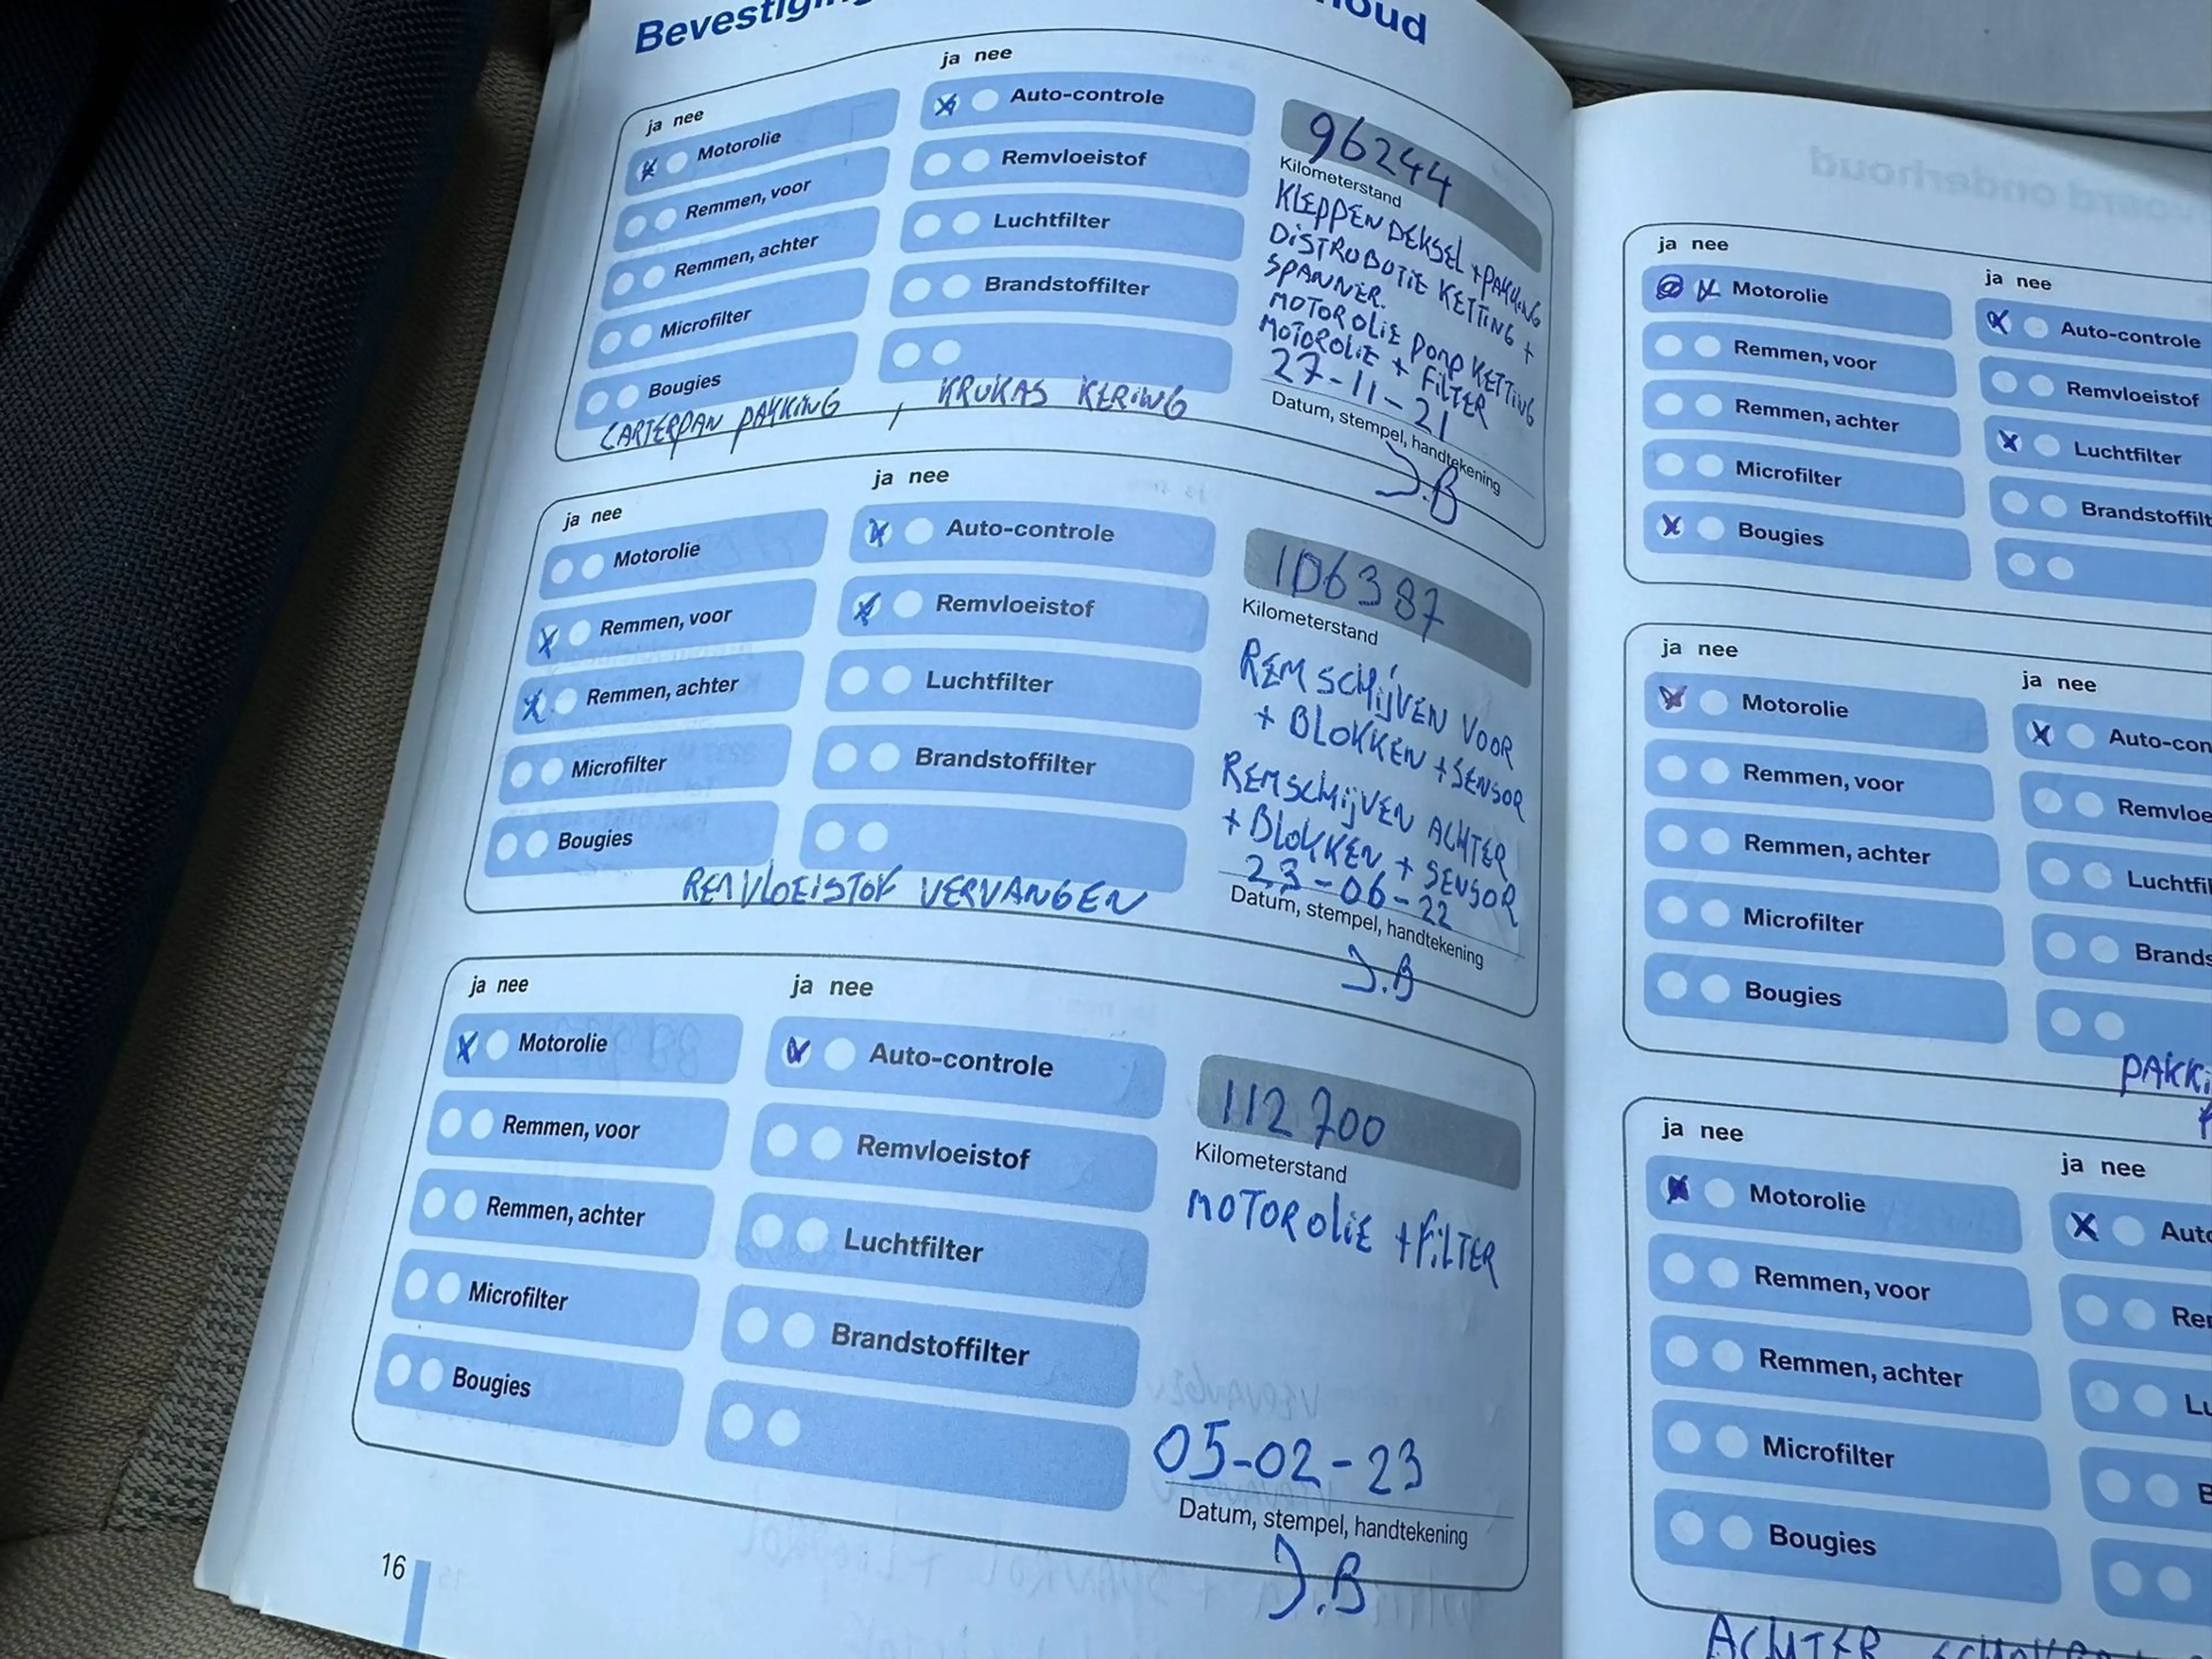 ja nee
Motorolie
Remmen, voor
Remmen, achter
Microfilter
Bougies
ja nee
Auto-controle
Remvloeistof
Luchtfilter
Brandstoffilter
CARTERPAN PAKKING , KRUKAS KERING
96244
Kilometerstand
KLEPPENDEKSEL + PAKKING
DISTROBUTIE KETTING +
SPANNER.
MOTOROLIE POMP KETTING
MOTOROLIE + FILTER
27-11-21
Datum, stempel, handtekening
J.B
ja nee
Motorolie
Remmen, voor
Remmen, achter
Microfilter
Bougies
ja nee
Auto-controle
Remvloeistof
Luchtfilter
Brandstoffilter
REMVLOEISTOF VERVANGEN
106387
Kilometerstand
REMSCHIJVEN VOOR
+ BLOKKEN + SENSOR
REMSCHIJVEN ACHTER
+ BLOKKEN + SENSOR
23-06-22
Datum, stempel, handtekening
J.B
ja nee
Motorolie
Remmen, voor
Remmen, achter
Microfilter
Bougies
ja nee
Auto-controle
Remvloeistof
Luchtfilter
Brandstoffilter
112700
Kilometerstand
MOTOROLIE + FILTER
05-02-23
Datum, stempel, handtekening
J.B
16
ja nee
Motorolie
Remmen, voor
Remmen, achter
Microfilter
Bougies
ja nee
Auto-controle
Remvloeistof
Luchtfilter
ja nee
Motorolie
Remmen, voor
Remmen, achter
Microfilter
Bougies
ja nee
ja nee
Motorolie
Remmen, voor
Remmen, achter
Microfilter
Bougies
ja nee
ACHTER